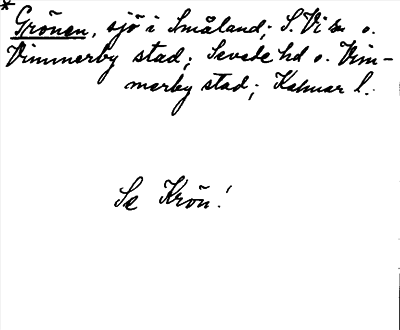 * Grönen, sjö i Småland; S. Vi sn o.
Vimmerby stad; Sevede hd o. Vim-
merby stad; Kalmar l.
Se Krön!